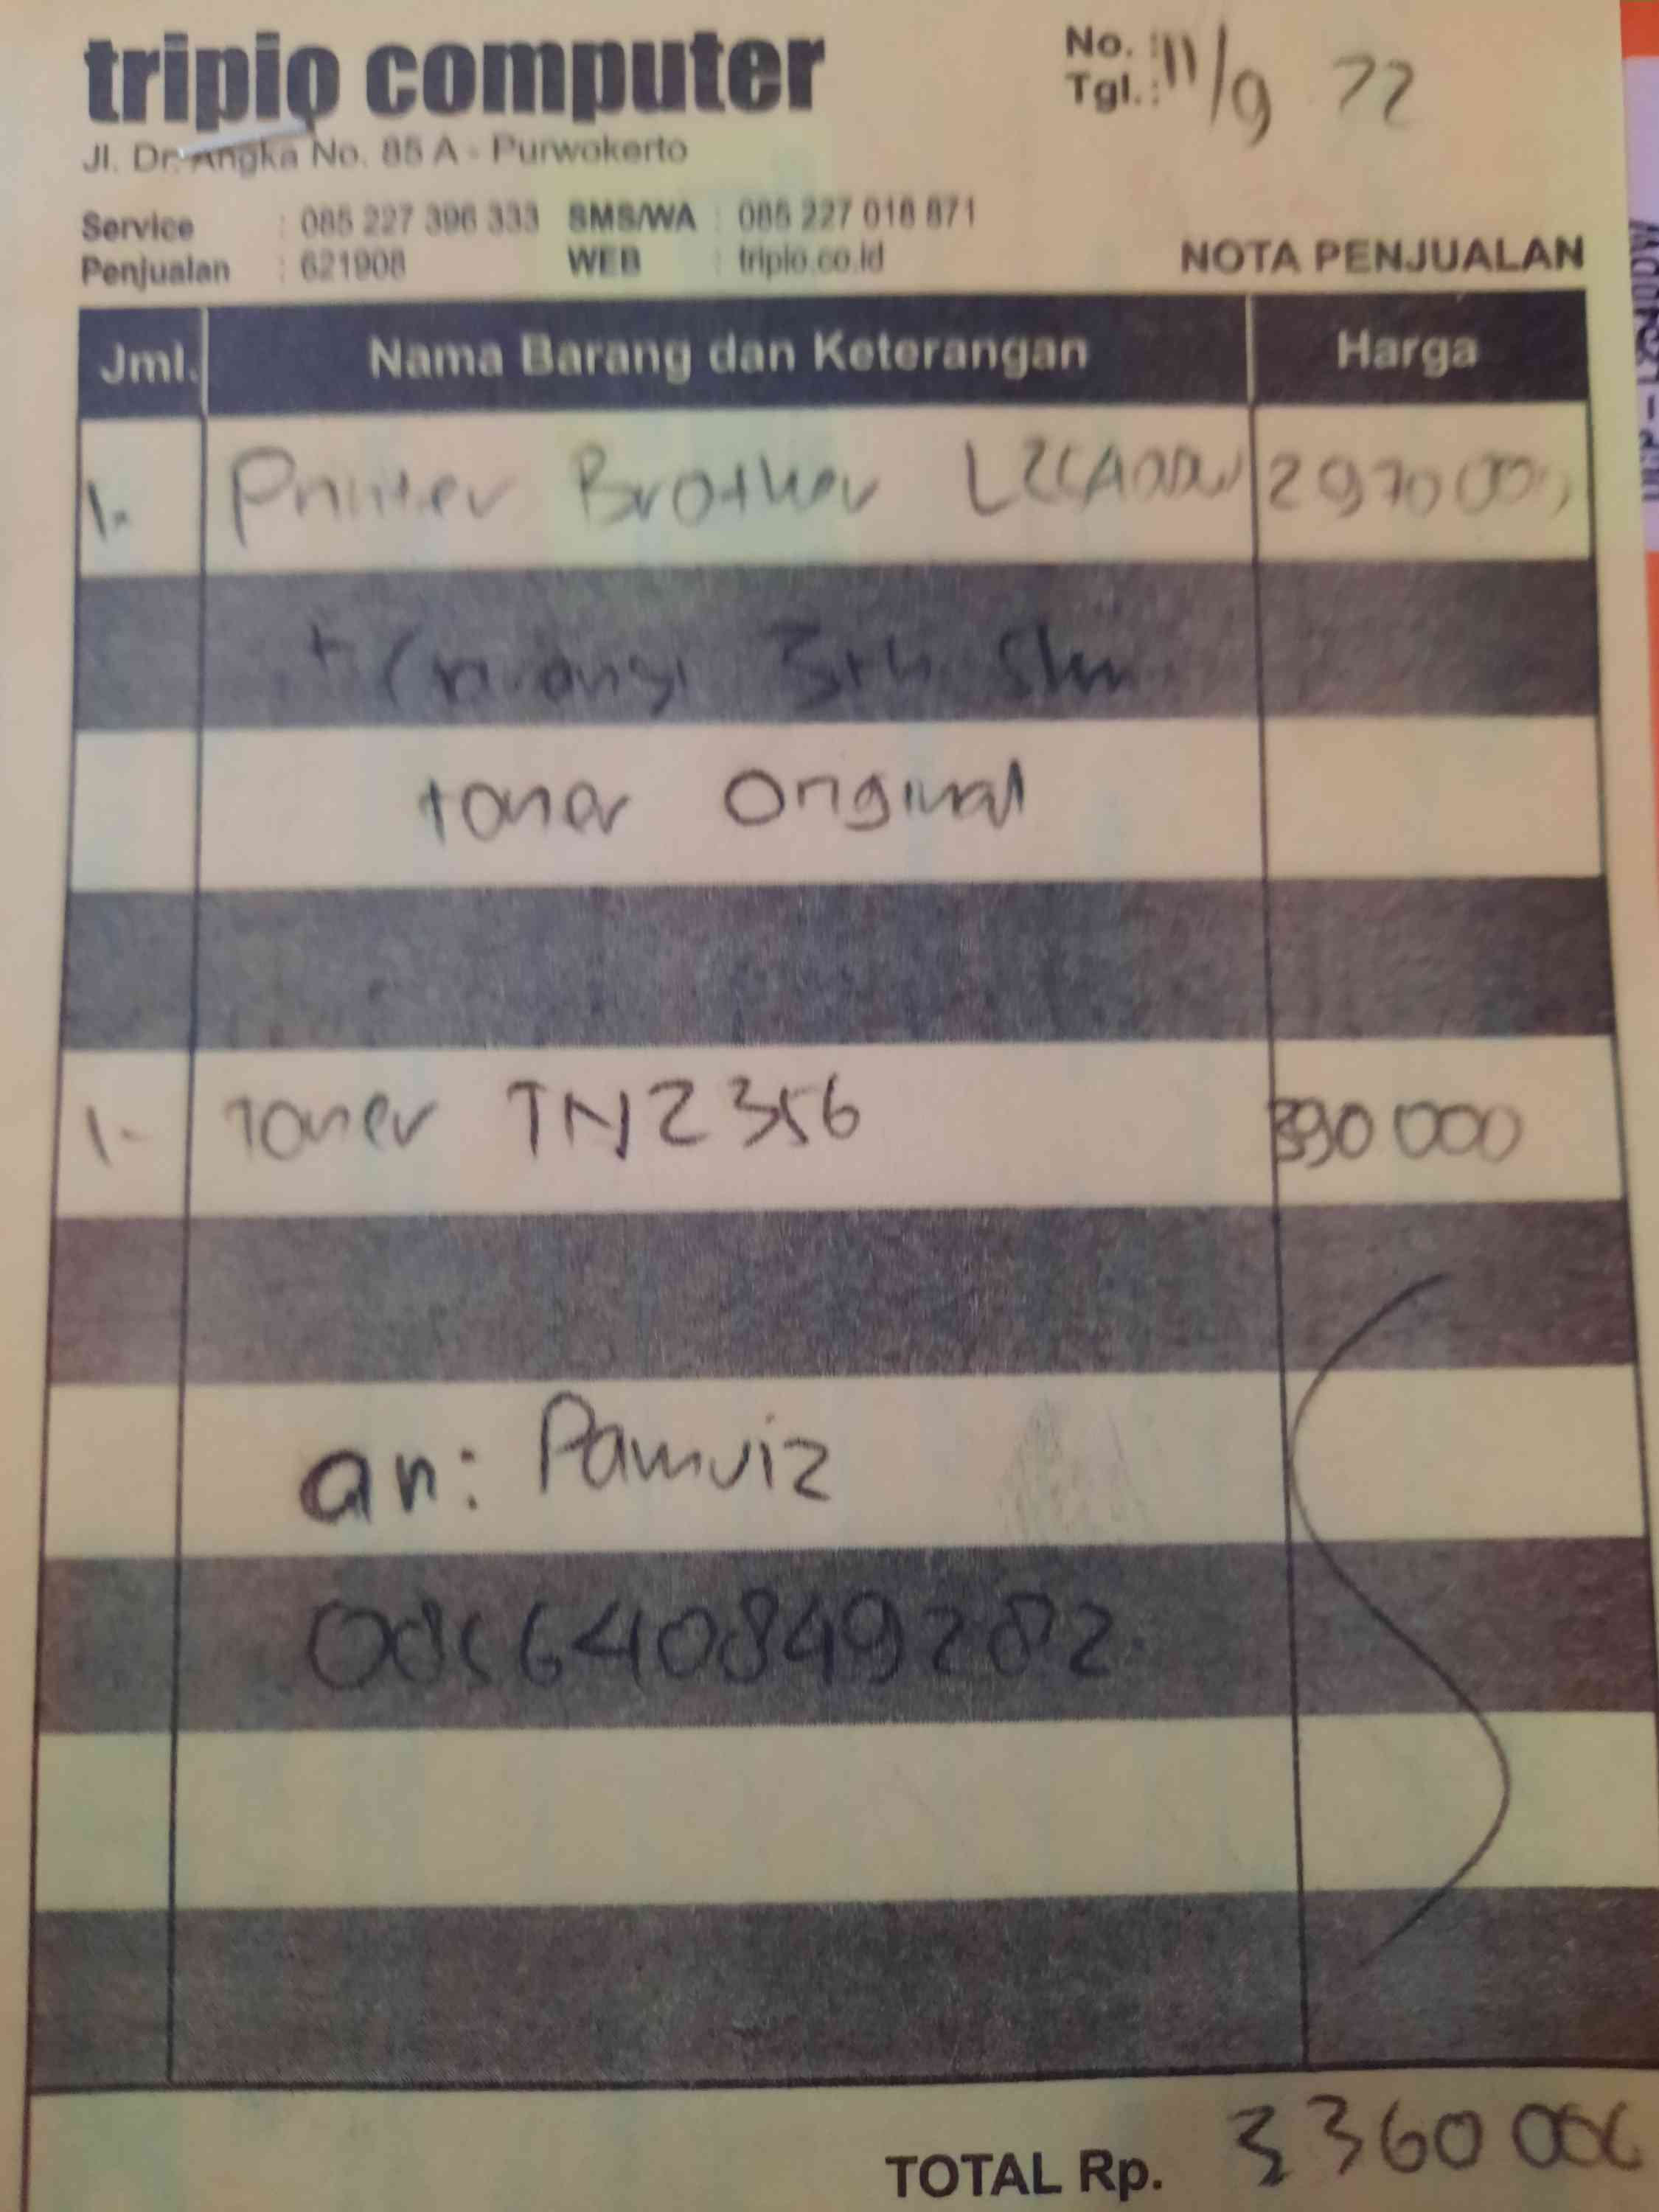 tripio computer
No. :
Tgl. : 11/9 22
Jl. Dr. Angka No. 85 A - Purwokerto
Service : 085 227 396 333 SMS/WA : 085 227 018 871
Penjualan : 621908 WEB : tripio.co.id
NOTA PENJUALAN
Jml. Nama Barang dan Keterangan Harga
1. Printer Brother 2970 000
3th
toner Original
1- Toner TN2356 390 000
an: Pamuiz
085640849282
TOTAL Rp. 3 360 000